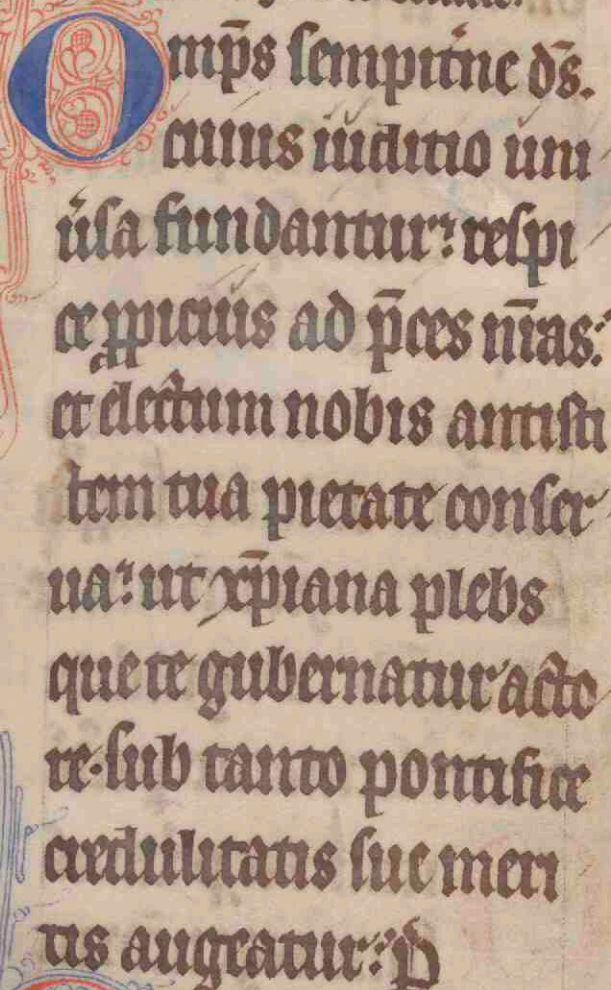 Omp̄s sempit̄ne ds̄.
cuius iuditio uni
u̇sa fundantur: respi
ce ꝓpicius ad p̄ces nr̄as:
et electum nobis antisti
tem tua pietate conser
ua: ut xp̄iana plebs
que te gubernatur acto
re. sub tanto pontifice
credulitatis sue meri
tis augeatur: P̱